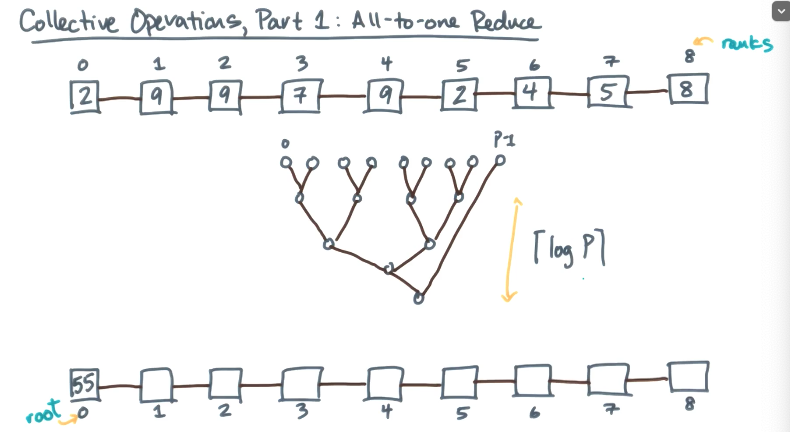 Collective Operations, Part 1: All-to-one Reduce
0 1 2 3 4 5 6 7 8 ranks
2 9 9 7 9 2 4 5 8
0 P-1
⌈log P⌉
55
root 0 1 2 3 4 5 6 7 8